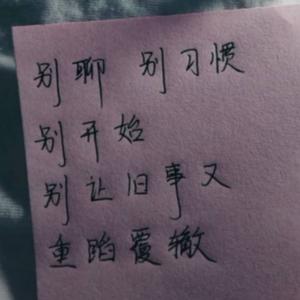 别聊 别习惯
别开始
别让旧事又
重蹈覆辙